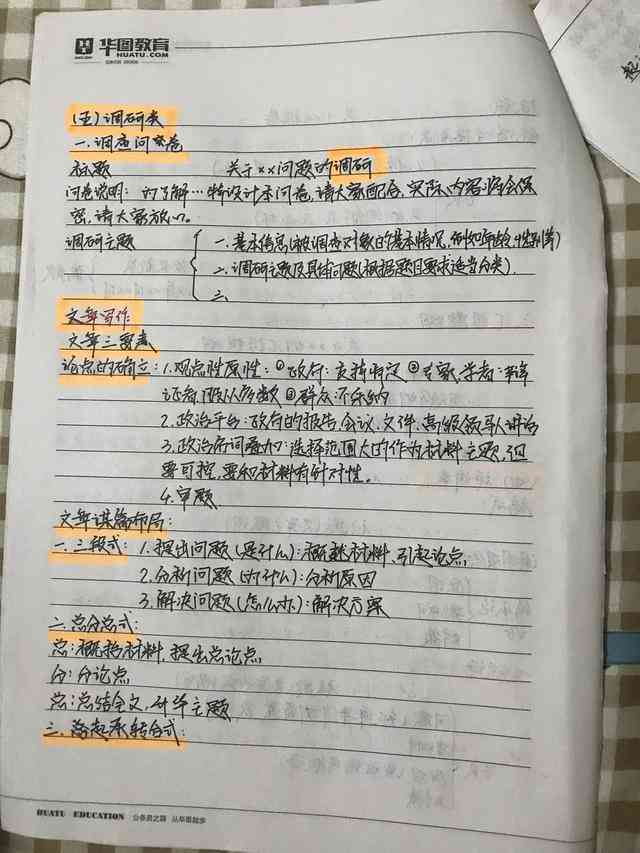 华图教育
HUATU.COM
(五)调研类
一.调查问卷
标题 关于××问题的调研
问卷说明: 为了解…特设计本问卷,请大家配合,实际内容将会保
密,请大家放心。
调研主题 一.基本信息(被调查对象的基本情况,例如年龄,性别等)
二.调研主题及具体问题(根据题目要求适当分类)
三
文章写作
文章三要素
论点的确立:1.观点性原性:①政府:支持肯定②专家,学者:
证看,服从多数③群众:
2.政治平台:政府的报告,会议,文件,高级领导人讲话
3.政治高词叠加:选择范围大的作为材料主题,但
要可控,要和材料有针对性。
4.审题
文章谋篇布局:
一.三段式:1.提出问题(是什么):概括材料、引起论点
2.分析问题(为什么):分析原因
3.解决问题(怎么办):解决方案
二.总分总式:
总:概括材料,提出总论点
分:分论点
总:总结全文,升华主题
三.起承转合式:
HUATU EDUCATION 公务员之路 从华图起步